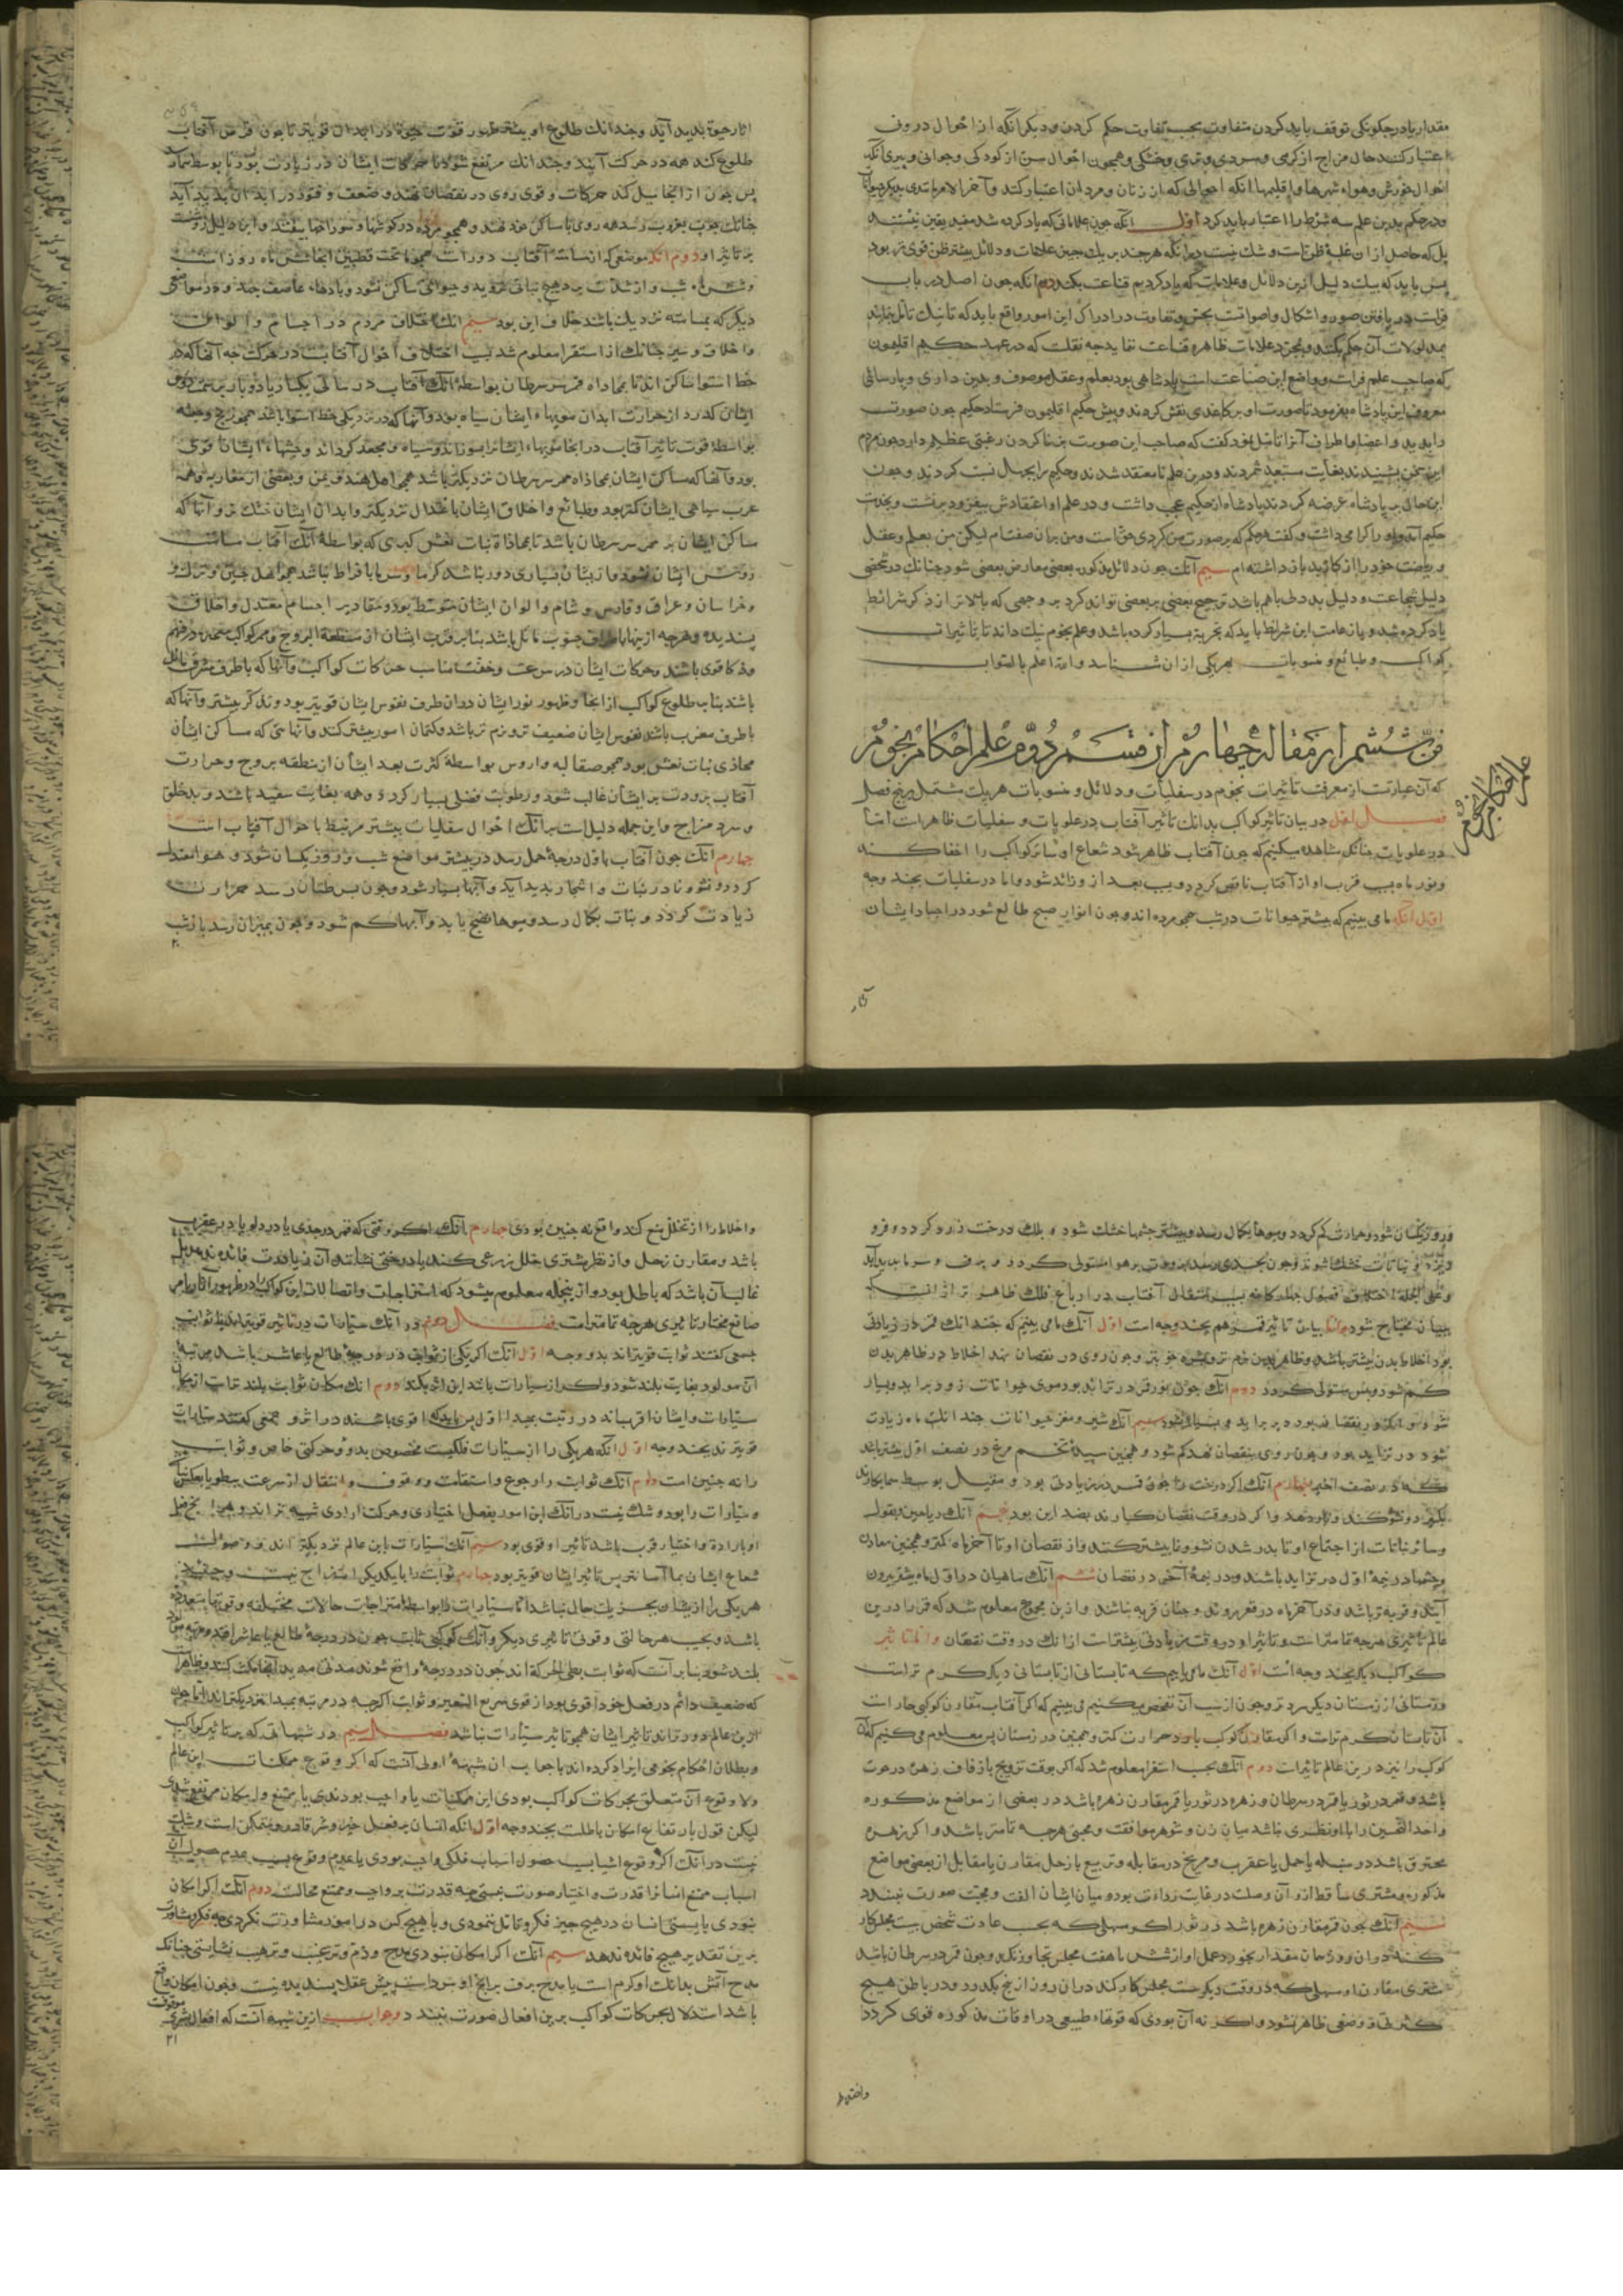 مقدار یا در چگونگی توقف باید کردن متفاوت بحسب تفاوت حکم کردن و دیگر آنکه از احوال در وی
اعتبار کنند حال مزاج از گرمی و سردی و تری و خشکی و همچون احوال سن از کودکی و جوانی و پیری آنکه
و در حکم بدین علم سه شرط را اعتبار باید کرد اول آنکه چون علاماتی که یاد کرده شد مفید یقین نیستند
بل که حاصل از آن غلبه ظن است و شک نیست در آنکه هر چند بر یک چیز علامات و دلائل بیشتر ظن قوی تر بود
پس باید که بیک دلیل ازین دلائل و علامات که یاد کردیم قناعت نکند دوم آنکه چون اصل در باب
که صاحب علم فراست و واضع این صناعت است پادشاهی بود بعلم و عقل موصوف و بدین داری و پارسائی
معروف این پادشاه بفرمود تا صورت او بر کاغذی نقش کردند و پیش حکیم اقلیمون فرستاد حکیم چون صورت
را بدید و اعضا و اطراف آنرا تأمل نمود گفت که صاحب این صورت بزنا کردن رغبتی عظیم دارد چون مردم
این سخن بشنیدند بغایت مستبعد شمردند و در حکیم نا معتقد شدند و حکیم را بجهل نسبت کردند و چون
این حال بر پادشاه عرضه کردند پادشاه از حکیم عجب داشت و در علم او اعتقادش بیفزود برنشست و بخدمت
حکیم آمد و او را گرامی داشت و گفت هر حکم که بر صورت من کردی حق است و من بر آن صفتم لیکن من بعلم و عقل
و ریاضت خود را از کار بد باز داشته ام سیم آنک چون دلائل مذکور بعضی معارض بعضی شود چنانک در شخصی
دلیل شجاعت و دلیل بددلی باهم باشد ترجیح بعضی بر بعضی تواند کرد بر وجهی که بالاتر از ذکر شرائط
یاد کرده شد و با رعایت این شرائط باید که تجربه بسیار کرده باشد و علم نجوم نیک داند تا تأثیرات
کواکب و طبائع و منسوبات هر یکی از آن شناسد والله اعلم بالصواب
فن ششم از مقالت چهارم از قسم دوم علم احکام نجوم
علم احکام النجوم
که آن عبارتست از معرفت تأثیرات نجوم در سفلیات و دلائل و منسوبات هر یک مشتمل بر پنج فصل
فصل اول در بیان تأثیر کواکب بدانک تأثیر آفتاب در علویات و سفلیات ظاهر است اما
در علویات چنانک مشاهده میکنیم که چون آفتاب ظاهر شود شعاع او سائر کواکب را اخفا کند
و نور ماه بسبب قرب او از آفتاب ناقص گردد و بسبب بعد از و زائد شود و اما در سفلیات بچند وجه
اول آنکه ما می بینیم که بیشتر حیوانات در شب همچو مرده اند و چون انوار صبح طالع شود در اجساد ایشان
آثار
آثار حیوة پدید آید و چندانک طلوع او بیشتر ظهور قوت حیوة در ابدان قویتر تا چون قرص آفتاب
طلوع کند همه در حرکت آیند و چندانک مرتفع شود تا حرکات ایشان در زیادت بود تا بوسط سما رسد
پس چون از آنجا میل کند حرکات و قوی روی در نقصان نهند و ضعف و فتور در ابدان پدید آید
دیگر که بمسامته نزدیک باشد خلاف این بود سیم آنک اختلاف مردم در اجسام و الوان
و اخلاق و سیر چنانک از استقرا معلوم شد بسبب اختلاف احوال آفتابست در حرکت چه آنها که در
بود و آنها که مساکن ایشان بمحاذاة ممر سرطان نزدیکتر باشد همچو اهل هند و یمن و بعضی از مغاربه و همه
عرب سیاهی ایشان کمتر بود و طبائع و اخلاق ایشان باعتدال نزدیکتر و ابدان ایشان خشک تر و آنها که
مساکن ایشان بر ممر سر سرطان باشد تا بمحاذاة بنات نعش کبری که بواسطه آنک آفتاب مسامت
رؤس ایشان نشود و از یشان بسیاری دور نباشد گرما و سرما بافراط نباشد همچو اهل چین و ترک و
خراسان و عراق و فارس و شام والوان ایشان متوسط بود و مقادیر اجسام معتدل و اخلاق
باشد بسبب طلوع کواکب از آنجا و ظهور نور ایشان در ان طرف نفوس ایشان قویتر بود و تذکر بیشتر و آنها که
باطرف مغرب باشند نفوس ایشان ضعیف تر و نرم تر باشد و کتمان امور بیشتر کنند و آنهائی که مساکن ایشان
محاذی بنات نعش بود همچو صقالبه و اروس بواسطه کثرت بعد ایشان از منطقه بروج و حرارت
آفتاب برودت بر ایشان غالب شود و رطوبت فضلی بسیار گردد و همه بغایت سفید باشند و بد خلق
و سرد مزاج و این جمله دلیل است بر آنک احوال سفلیات بیشتر مرتبط باحوال آفتاب است
چهارم آنک چون آفتاب باول درجه حمل رسد در بیشتر مواضع شب و روز یکسان شود و هوا معتدل
گردد و نشو و نما در نبات و اشجار پدید آید و آبها بسیار شود و چون بسرطان رسد حرارت
زیادت گردد و نبات بکمال رسد و میوها نضج یابد و آبها کم شود و چون بمیزان رسد باز شب
و روز یکسان شود و حرارت کم گردد و میوها بکمال رسد و بیشتر چشمها خشک شود و برگ درخت زرد گردد و فرو
ریزد و نباتات خشک شوند و چون بجدی رسد برودت بر هوا مستولی گردد و برف و سرما پدید آید
و علی الجمله اختلاف فصول چهارگانه بسبب انتقال آفتاب در ارباع فلک ظاهر تر از آنست که
ببیان محتاج شود و اما بیان تأثیر قمر هم بچند وجه است اول آنک ما می بینیم که چندانک قمر در زیادتی
بود اخلاط بدن بیشتر باشد و ظاهر بدن نرم تر و بشره خوبتر و چون روی در نقصان نهد اخلاط در ظاهر بدن
کم شود و یبس مستولی گردد دوم آنک چون نور قمر در تزاید بود موی حیوانات زود بر آید و بسیار
شود و اگر در نقصان بود دیر بر آید و بسیار نشود سیم آنک شیر و مغز حیوانات چندانک ماه زیادت
شود در تزاید بود و چون روی بنقصان نهد کم شود و همچنین سپیده تخم مرغ در نصف اول بیشتر باشد
که در نصف اخیر چهارم آنک اگر درخت را چون قمر در زیادتی بود و مقبل بوسط سما بکارند
بگیرد و نشو کند و بار دهد و اگر در وقت نقصان کارند بضد این بود پنجم آنک ریاحین و بقول
و سائر نباتات از اجتماع او تا بدر شدن نشو و نما بیشتر کنند و از نقصان او تا آخر ماه کمتر و همچنین معادن
و چشمها در نیمه اول در تزاید باشند و در نیمه آخر در نقصان ششم آنک ماهیان در اول ماه بیشتر بیرون
آیند و فربه تر باشند و در آخر ماه در قعر بروند و چنان فربه نباشند و ازین مجموع معلوم شد که قمر را درین
عالم تأثیری هر چه تمامتر است و تأثیر او در وقت زیادتی بیشتر است از آنک در وقت نقصان و اما تأثیر
کواکب دیگر بچند وجه است اول آنک ما می یابیم که تابستانی از تابستانی دیگر گرم تر است
و زمستانی از زمستان دیگر سردتر و چون از سبب آن تفحص میکنیم می بینیم که اگر آفتاب مقارن کوکبی حار است
آن تابستان گرم تر است و اگر مقارن کوکب بارد حرارت کمتر و همچنین در زمستان پس معلوم می کنیم که آن
کوکب را نیز درین عالم تأثیر است دوم آنک بحسب استقرا معلوم شد که اگر بوقت تزویج یا زفاف زهره در حوت
باشد و قمر در ثور یا قمر در سرطان و زهره در ثور یا قمر مقارن زهره باشد در بعضی از مواضع مذکوره
و احد النحسین را با او نظری نباشد میان زن و شوهر موافقت و محبتی هر چه تمامتر باشد و اگر زهره
محترق باشد در سنبله یا حمل یا عقرب و مریخ در مقابله و تربیع یا زحل مقارن یا مقابل از بعضی مواضع
مذکوره و مشتری ساقط از و آن وصلت در غایت رداءت بود و میان ایشان الفت و محبت صورت نبندد
سیم آنک چون قمر مقارن زهره باشد در ثور اگر مسهلی که بحسب عادت شخص بیست مجلس کار
کند در آن روز همان مقدار بخورد عمل او از شش یا هفت مجلس تجاوز نکند و چون قمر در سرطان باشد
مشتری مقارن او مسهلی که در وقت دیگر بیست مجلس کار کند در ان روز از پنج نگذرد و در باطن هیچ
کثرتی و ضعفی ظاهر نشود و اگر نه آن بودی که قوتهاء طبیعی در اوقات مذکوره قوی گردد
و اخلاط
و اخلاط را از تحلل منع کند واقع نه چنین بودی چهارم آنک اگر وقتی که قمر در جدی یا در دلو یا در عقرب
باشد و مقارن زحل و از نظر مشتری خالی زرعی کنند یا درختی نشانند آن زیادت فائده ندهد بل
غالب آن باشد که باطل بود و ازینجمله معلوم میشود که امتزاجات و اتصالات این کواکب را در ظهور آثار بامر
صانع مختار تأثیری هر چه تمامتر است فصل دوم در آنک سیارات در تأثیر قویترند یا ثوابت
جمعی گفتند ثوابت قویتراند بدو وجه اول آنک اگر یکی از ثوابت در درجه طالع یا عاشر باشد مرتبه
آن مولود بغایت بلند شود و اگر از سیارات باشد این اثر نکند دوم آنک مکان ثوابت بلندتر است از مکان
سیارات و ایشان اقرب اند در رتبت بمبدأ اول پس باید که اقوی باشند در اثر و جمعی گفتند سیارات
قویترند بچند وجه اول آنکه هر یکی را از سیارات فلکیست مخصوص بدو و حرکتی خاص و ثوابت
را نه چنین است دوم آنک ثوابت را رجوع و استقامت و وقوف و انتقال از سرعت ببطؤ یا بعکس نیست
و سیارات را بود و شک نیست در آنک این امور بفعل اختیاری و حرکت ارادی شبیه تر اند و هرچ فعل
او بارادة و اختیار قرب باشد تأثیر او قوی بود سیم آنک سیارات باین عالم نزدیکتر اند و وصول
شعاع ایشان بما آسانتر پس تأثیر ایشان قویتر بود چهارم ثوابت را با یکدیگر امتزاج نیست و
هر یکی را از یشان بجز یک حال نباشد اما سیارات را بواسطه امتزاجات حالات مختلفه و قوتها متعدده
باشد و بحسب هر حالتی و قوتی تأثیری دیگر و آنک کوکبی ثابت چون در درجه طالع یا عاشر افتد مرتبه مولود
که ضعیف دائم در فعل خود اقوی بود از قوی سریع التغیر و ثوابت اگرچه در مرتبه بمبدأ نزدیکتر اند اما چون
ازین عالم دورتراند تأثیر ایشان همچو تأثیر سیارات نباشد فصل سیم در شبهاتی که بر تأثیر کواکب
و بطلان احکام نجومی ایراد کرده اند با جواب آن شبهه اولی آنست که اگر وقوع ممکنات این عالم
ولا وقوع آن متعلق بحرکات کواکب بودی این ممکنات یا واجب بودندی یا ممتنع و امکان مرتفع شدی
لیکن قول بارتفاع امکان باطلست بچند وجه اول آنکه انسان بر فعل خیر و شر قادر و متمکن است و شک
نیست در آنک اگر وقوع اشیا بسبب حصول اسباب فلکی واجب بودی یا عدم وقوع بسبب عدم حصول آن
اسباب ممتنع انسانرا قدرت و اختیار صورت نبستی چه قدرت بر واجب و ممتنع محالست دوم آنک اگر امکان
نبودی بایستی انسان در هیچ چیز فکر و تأمل ننمودی و با هیچ کس در امور مشاورت نکردی چه فکر و مشاورت
برین تقدیر هیچ فائده ندهد سیم آنک اگر امکان نبودی مدح و ذم و ترغیب و ترهیب نشایستی چنانک
مدح آتش بدانک او گرم است یا مدح برف بر آنچ او سرد است پیش عقلا پسندیده نیست و چون امکان واقع
باشد استدلال بحرکات کواکب برین افعال صورت نبندد و جواب ازین شبهه آنست که افعال بشری موقوفست